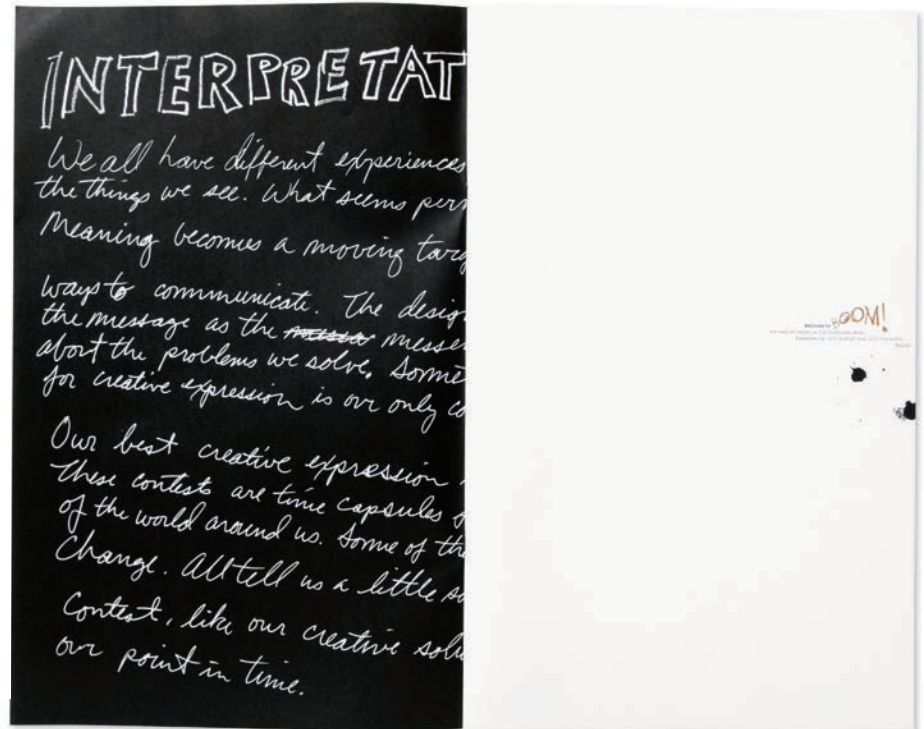 INTERPRETAT
We all have different experiences
the things we see. What seems per
Meaning becomes a moving targ
ways to communicate. The desig
the message as the messen
about the problems we solve. Some
for creative expression is our only co
Our best creative expression
These contests are time capsules o
of the world around us. Some of the
Change. All tell us a little so
Contest, like our creative solu
our point in time.
Welcome to BOOM!